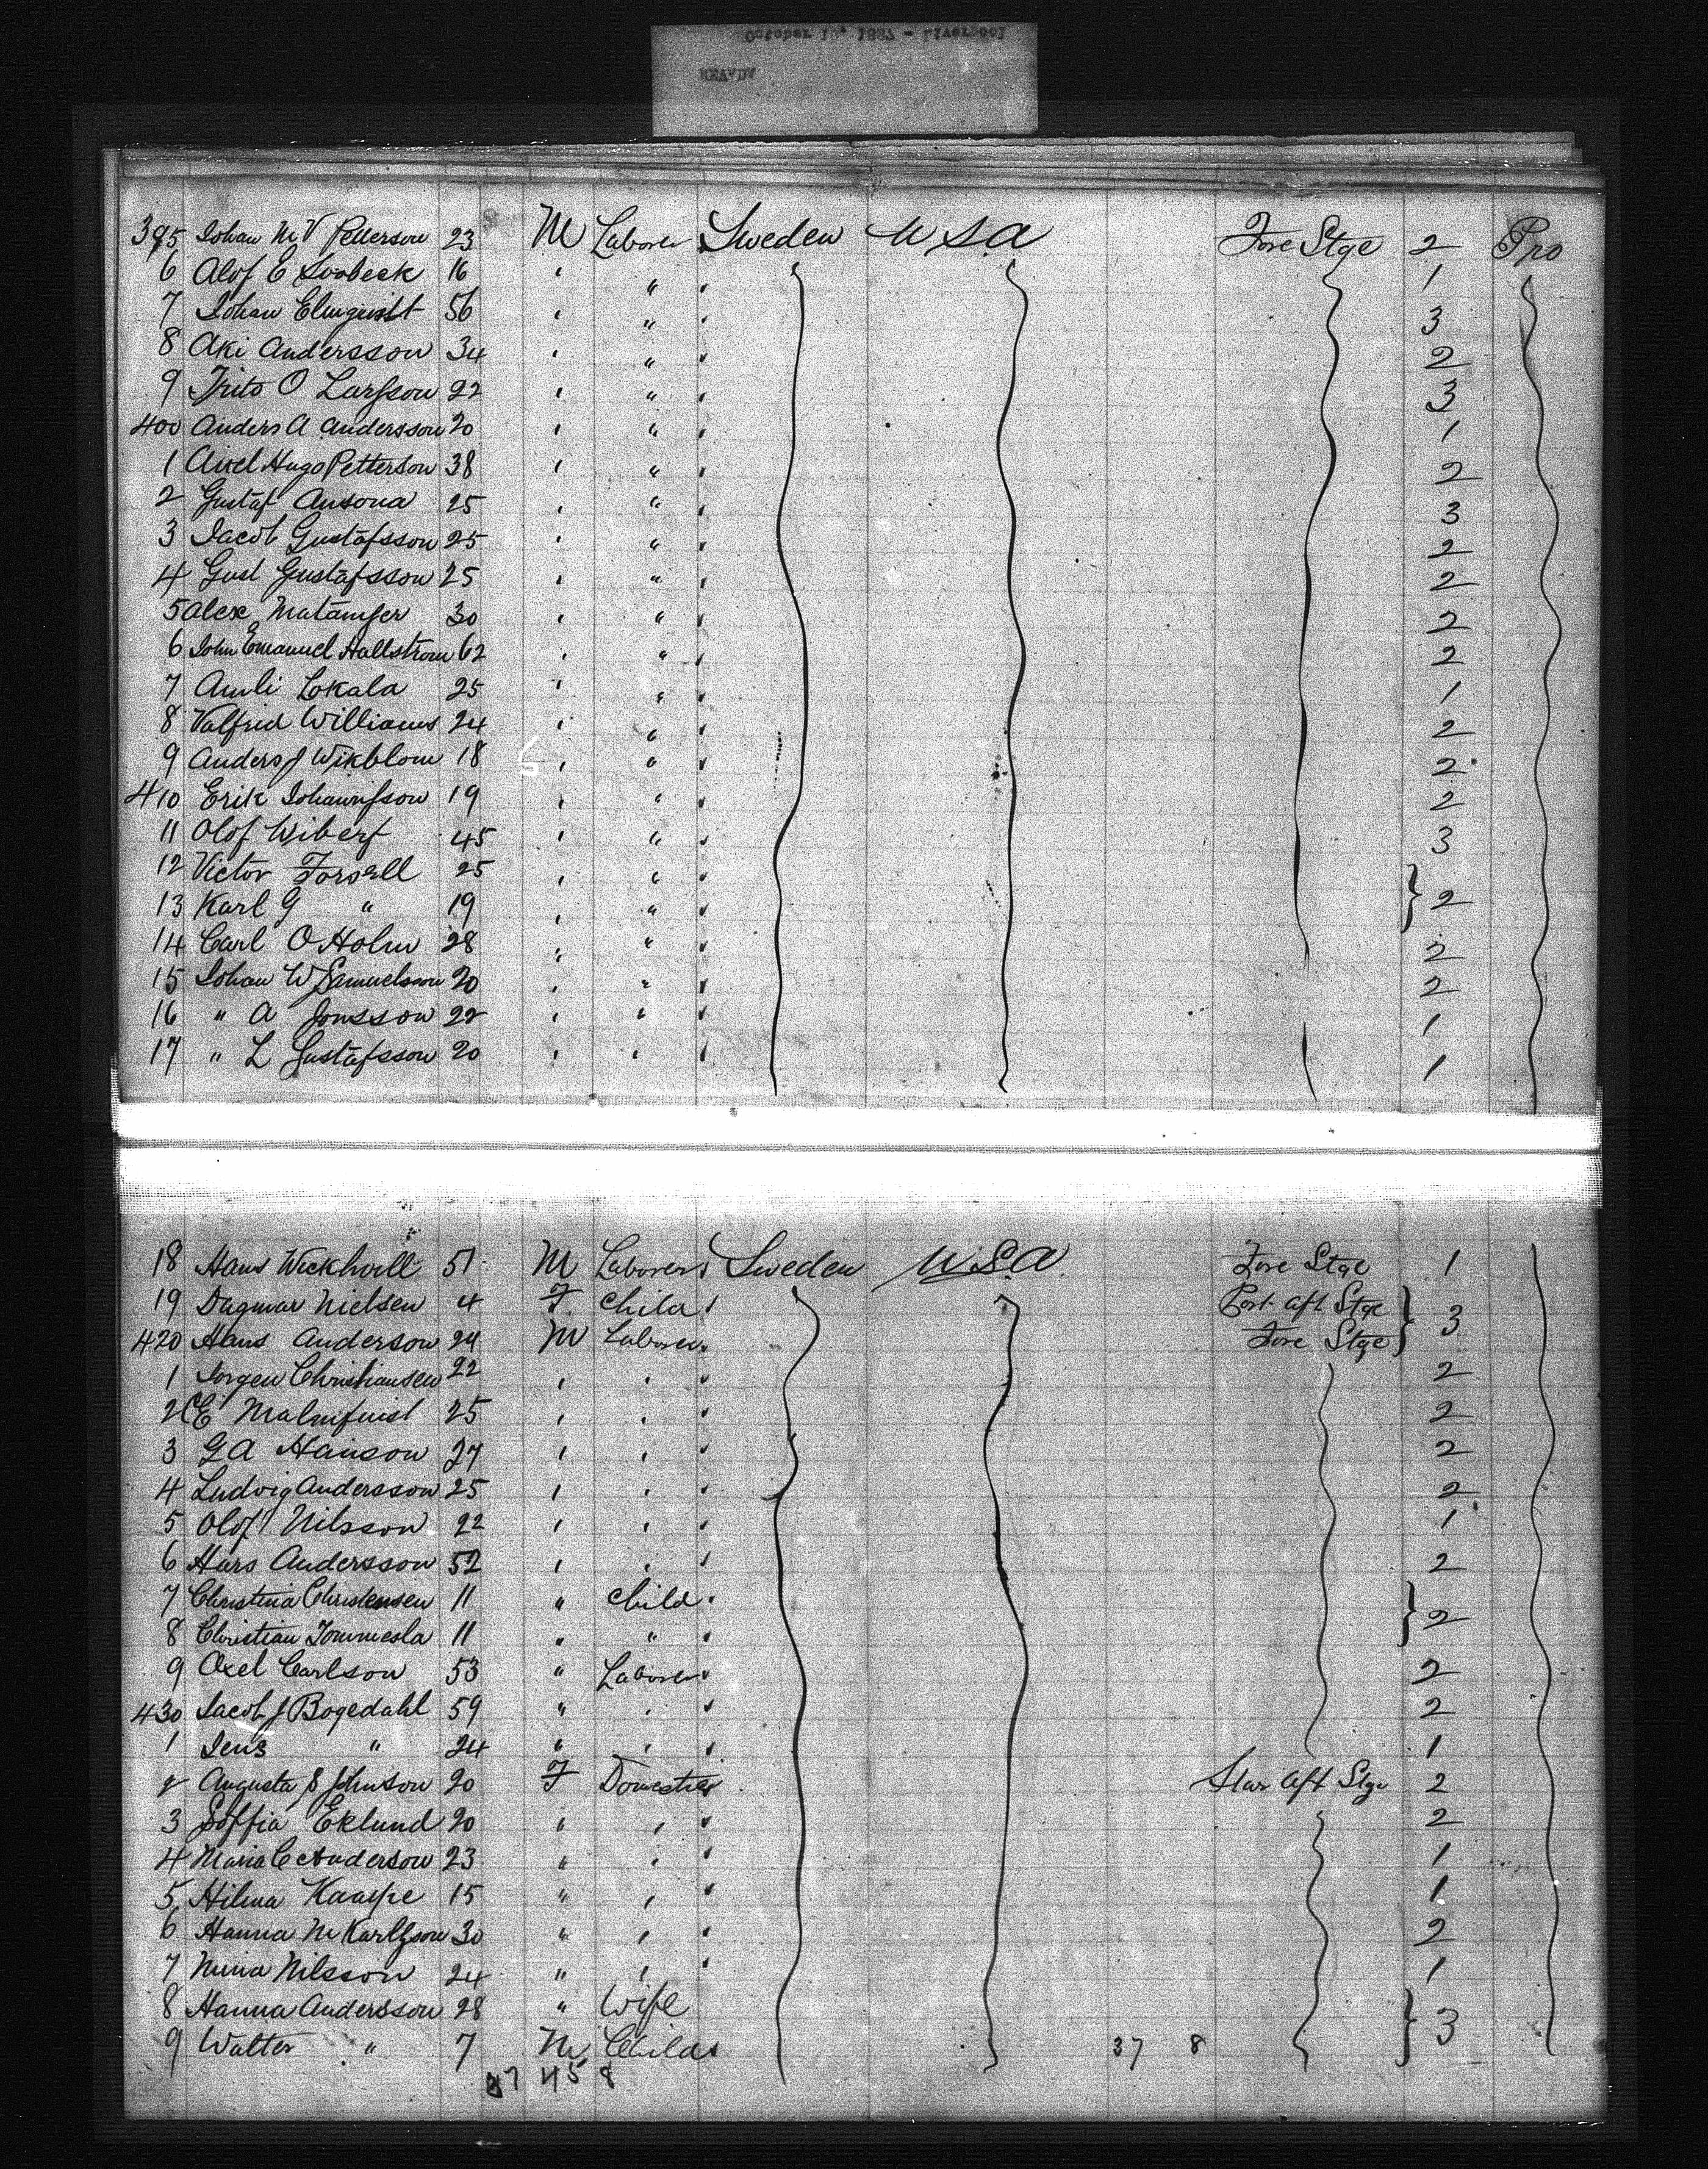 October 18, 1887 - Liverpool
NEVADA
395 Johan M V Petterson 23 M Laborer Sweden U S A Fore Stge 2 Pro
6 Alof E Svobeck 16 " " 1
7 Johan Elmquist 56 " " 3
8 Aki Andersson 34 " " 2
9 Frits O Larsson 22 " " 3
400 Anders A Andersson 20 " " 1
1 Axel Hugo Petterson 38 " " 2
2 Gustaf Ansona 25 " " 3
3 Jacob Gustafsson 25 " " 2
4 Gust Gustafsson 25 " " 2
5 Alex 30 " " 2
6 John Emanuel Hallstrom 62 " " 2
7 Lokala 25 " " 1
8 Valfrid Williams 24 " " 2
9 Anders J Wikblom 18 " " 2
410 Erik Johannsson 19 " " 2
11 Olof Wiberg 45 " " 3
12 Victor Forsell 25 " "
13 Karl G " 19 " " } 2
14 Carl O Holm 28 " " 2
15 Johan W Samuelsson 20 " " 2
16 " A Jonsson 22 " " 1
17 " L Gustafsson 20 " " 1
18 Hans 51 M Laborer Sweden U.S.A. Fore Stge 1
19 Dagmar Nielsen 4 F Child Port Aft Stge
420 Hans Anderson 24 M Laborer Fore Stge } 3
1 Jorgen Christiansen 22 " " 2
2 C E Malmquist 25 " " 2
3 G A Hanson 27 " " 2
4 Ludvig Andersson 25 " " 2
5 Olof Nilsson 22 " " 1
6 Hans Andersson 52 " " 2
7 Christina Christensen 11 " Child
8 Christian Tommesla 11 " " } 2
9 Axel Carlson 53 " Laborer 2
430 Jacob J Bogedahl 59 " " 2
1 Jens " 24 " " 1
2 Augusta S Johnson 20 F Domestic Star Aft Stge 2
3 Soffia Eklund 20 " " 2
4 Maria C Anderson 23 " " 1
5 Hilma 15 " " 1
6 Hanna M Karlsson 30 " " 2
7 Nilsson 24 " " 1
8 Hanna Andersson 28 " Wife
9 Walter " 7 M Child 37 8 } 3
37 45 8